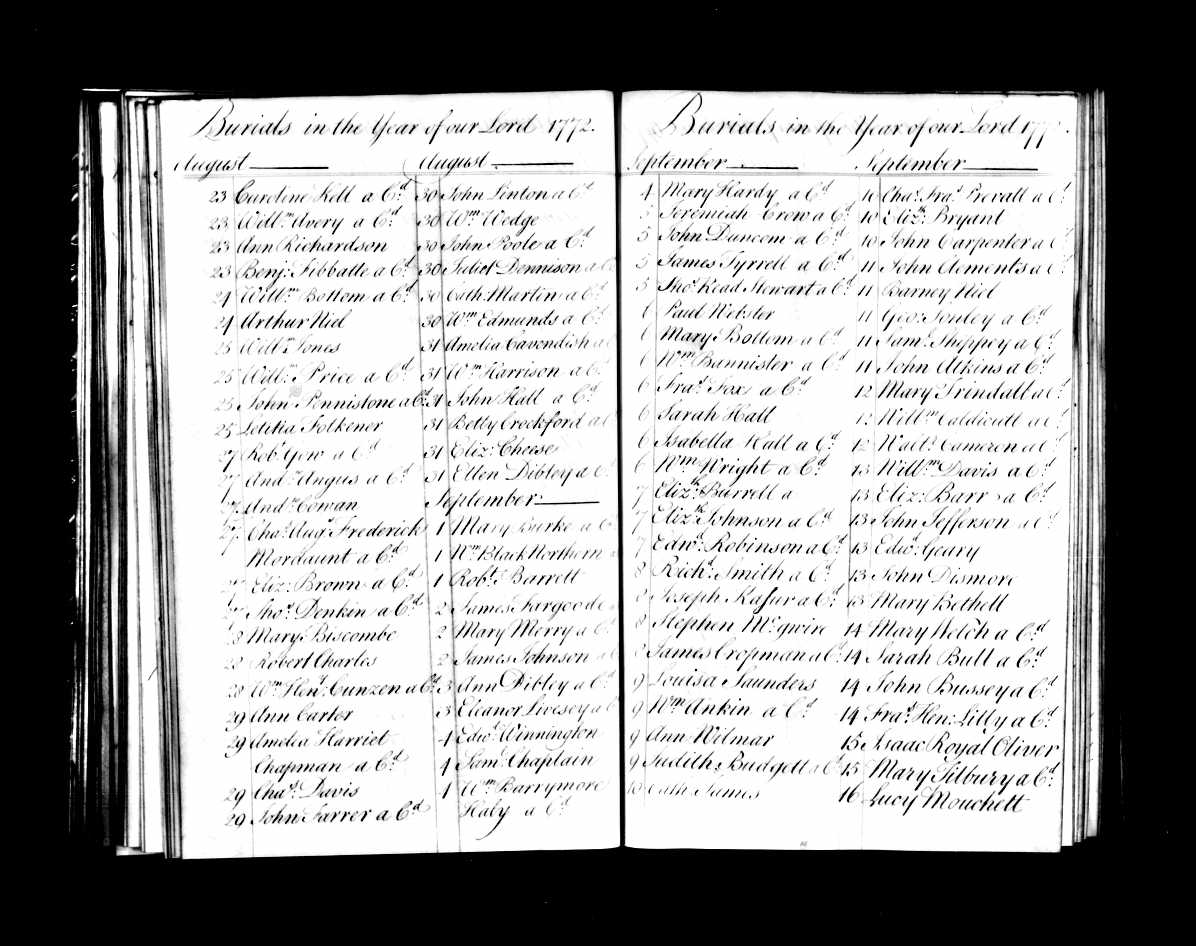 Burials in the Year of our Lord 1772.
August
23 Caroline Kell a C.d
23 Will.m Avery a C.d
23 Ann Richardson
23 Benj: Tibbatte a C.d
24 Will.m Bottom a C.d
24 Arthur Niel
25 Will.m Jones
25 Will.m Price a C.d
25 John Pennistone a C.d
25 Letitia Folkener
27 Rob.t Yew a C.d
27 And.w Angus a C.d
27 And.w Cowan
27 Cha.s Aug.s Frederick
Mordaunt a C.d
27 Eliz: Brown a C.d
27 Tho.s Denkin a C.d
28 Mary Biscombe
28 Robert Charles
28 W.m Hen.y Cunzen a C.d
29 Ann Carter
29 Amelia Harriet
Chapman a C.d
29 Cha.s Davis
29 John Farrer a C.d
August
30 John Linton a C.d
30 W.m Wedge
30 John Poole a C.d
30 Dennison a C.d
30 Cath: Martin a C.d
30 W.m Edmunds a C.d
31 Amelia Cavendish a C
31 W.m Harrison a C.d
31 John Hall a C.d
31 Betty Crockford a C
31 Eliz: Cheese
31 Ellen Dibley a C.d
September
1 Mary Burke a C.d
1 W.m Black Northern a
1 Rob.t Barrett
2 James Fargoode
2 Mary Merry a C.d
2 James Johnson a C
3 Ann Dibley a C.d
3 Eleanor Livesey a C
4 Edw.d Winnington
4 Sam.l Chaplain
4 W.m Barrymore
Haly a C.d
Burials in the Year of our Lord 177
September
4 Mary Hardy a C.d
5 Jeremiah Crow a C.d
5 John Duncom a C.d
5 James Tyrrell a C.d
5 Tho.s Read Stewart a C.d
6 Paul Webster
6 Mary Bottom a C.d
6 W.m Bannister a C.d
6 Fra.s Fox a C.d
6 Sarah Hall
6 Isabella Wall a C.d
6 W.m Wright a C.d
7 Eliz.th Burrell a
7 Eliz.th Johnson a C.d
7 Edw.d Robinson a C.d
8 Rich.d Smith a C.d
8 Joseph Kasur a C.d
8 Stephen M.cgwire
8 James Cropman a C.d
9 Louisa Saunders
9 W.m Ankin a C.d
9 Ann Wilmar
9 Judith Budgell a C.d
10 Cath: James
September
10 Cha.s Fra.s Prevall a C.d
10 Eliz.th Bryant
10 John Carpenter a C
11 John Clements a C.d
11 Barney Niel
11 Geo: Sonley a C.d
11 Sam.l Sheppey a C.d
11 John Atkins a C.d
12 Mary Trindall a C.d
12 Will.m Caldicutt a C.d
12 Walt.r Cameron a C.d
13 Will.m Davis a C.d
13 Eliz: Barr a C.d
13 John Jefferson a C.d
13 Edw.d Geary
13 John Dismore
13 Mary Bethell
14 Mary Welch a C.d
14 Sarah Butt a C.d
14 John Bussey a C.d
14 Fra.s Hen: Lilly a C.d
15 Isaac Royal Oliver
15 Mary Silbury a C.d
16 Lucy Mouchett